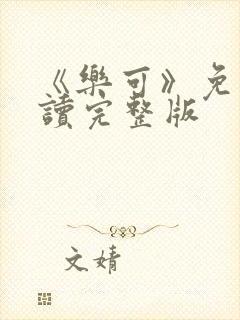 《樂可》免
讀完整版
文婧